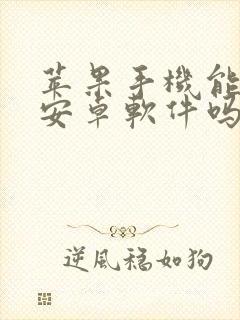 苹果手機能
安卓軟件吗
逆風稳如狗